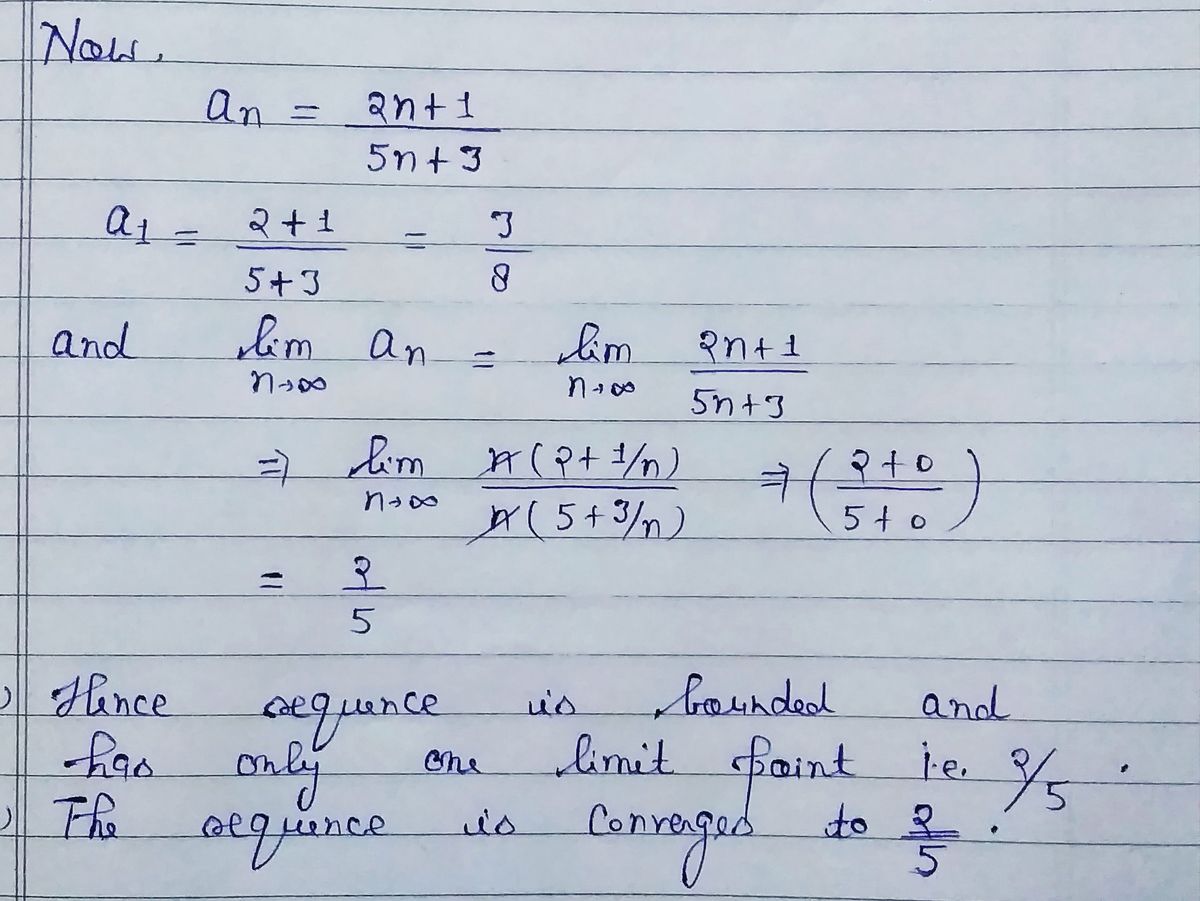 Now,
an = 2n+1 / 5n+3
a1 = 2+1 / 5+3 = 3 / 8
and lim n→∞ an = lim n→∞ 2n+1 / 5n+3
⇒ lim n→∞ n(2+1/n) / n(5+3/n) ⇒ (2+0 / 5+0)
= 2 / 5
Hence sequence is bounded and
has only one limit point i.e. 2/5 .
The sequence is Converges to 2/5 .